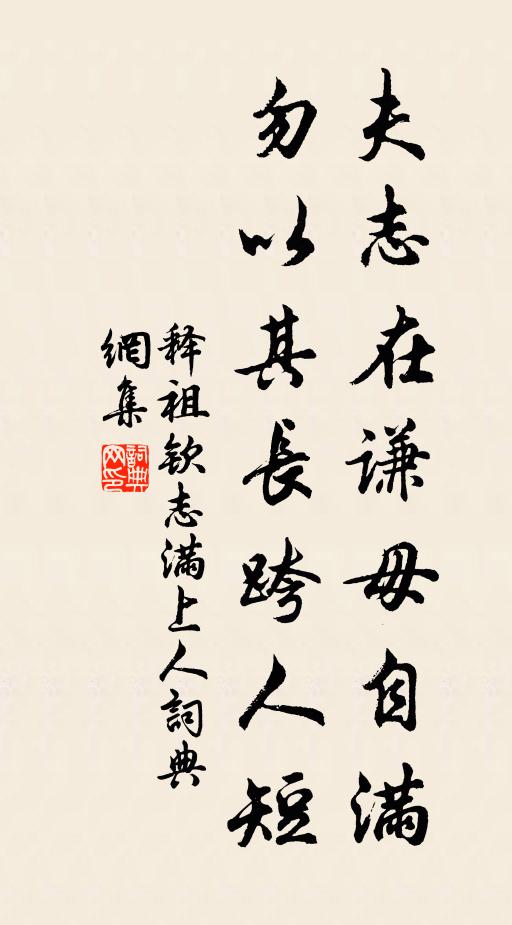 夫志在谦毋自滿
勿以其長跨人短
释祖钦志滿上人詞典
網集
詞典網印